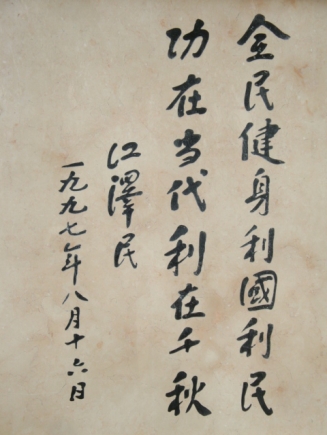 全民健身利國利民
功在当代利在千秋
江澤民
一九九七年八月十六日